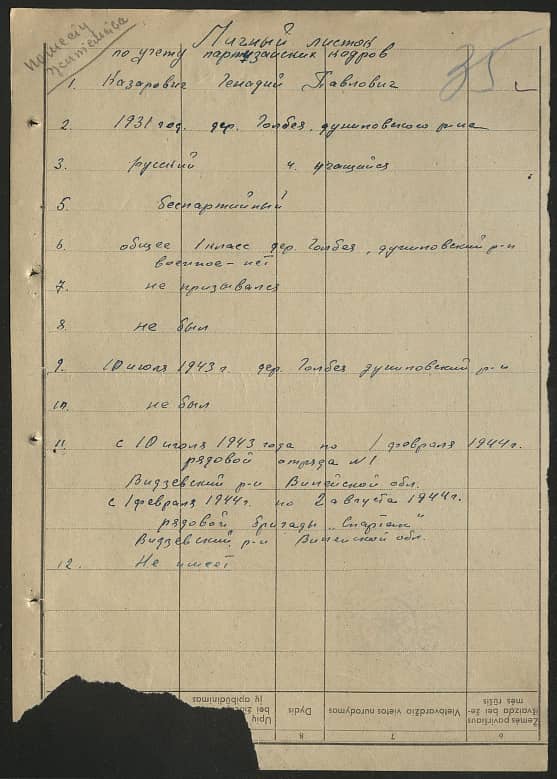 Личный листок
по учету партизанских кадров
35
1. Казарович Генадий Павлович
2. 1931 год. дер. Голбея, дуниловского р-на
3. русский 4. учащийся
5. беспартийный
6. общее 1 класс дер. Голбея, дуниловский р-н
военное - нет
7. не призывался
8. не был
9. 10 июля 1943 г. дер. Голбея дуниловский р-н
10. не был
11 с 10 июля 1943 года по 1 февраля 1944 г.
рядовой отряда №1
Видзевский р-н Вилейской обл.
с 1 февраля 1944 г. по 2 августа 1944 г.
рядовой бригады "Спартак"
Видзевский р-н Вилейской обл.
12. Не имеет
Upių
bei
ų apibūdinimas
Dydis
Vietovardžio vietos nurodymas
Žemės paviršiaus
išvaizda bei že-
mės rūšis
8
7
6